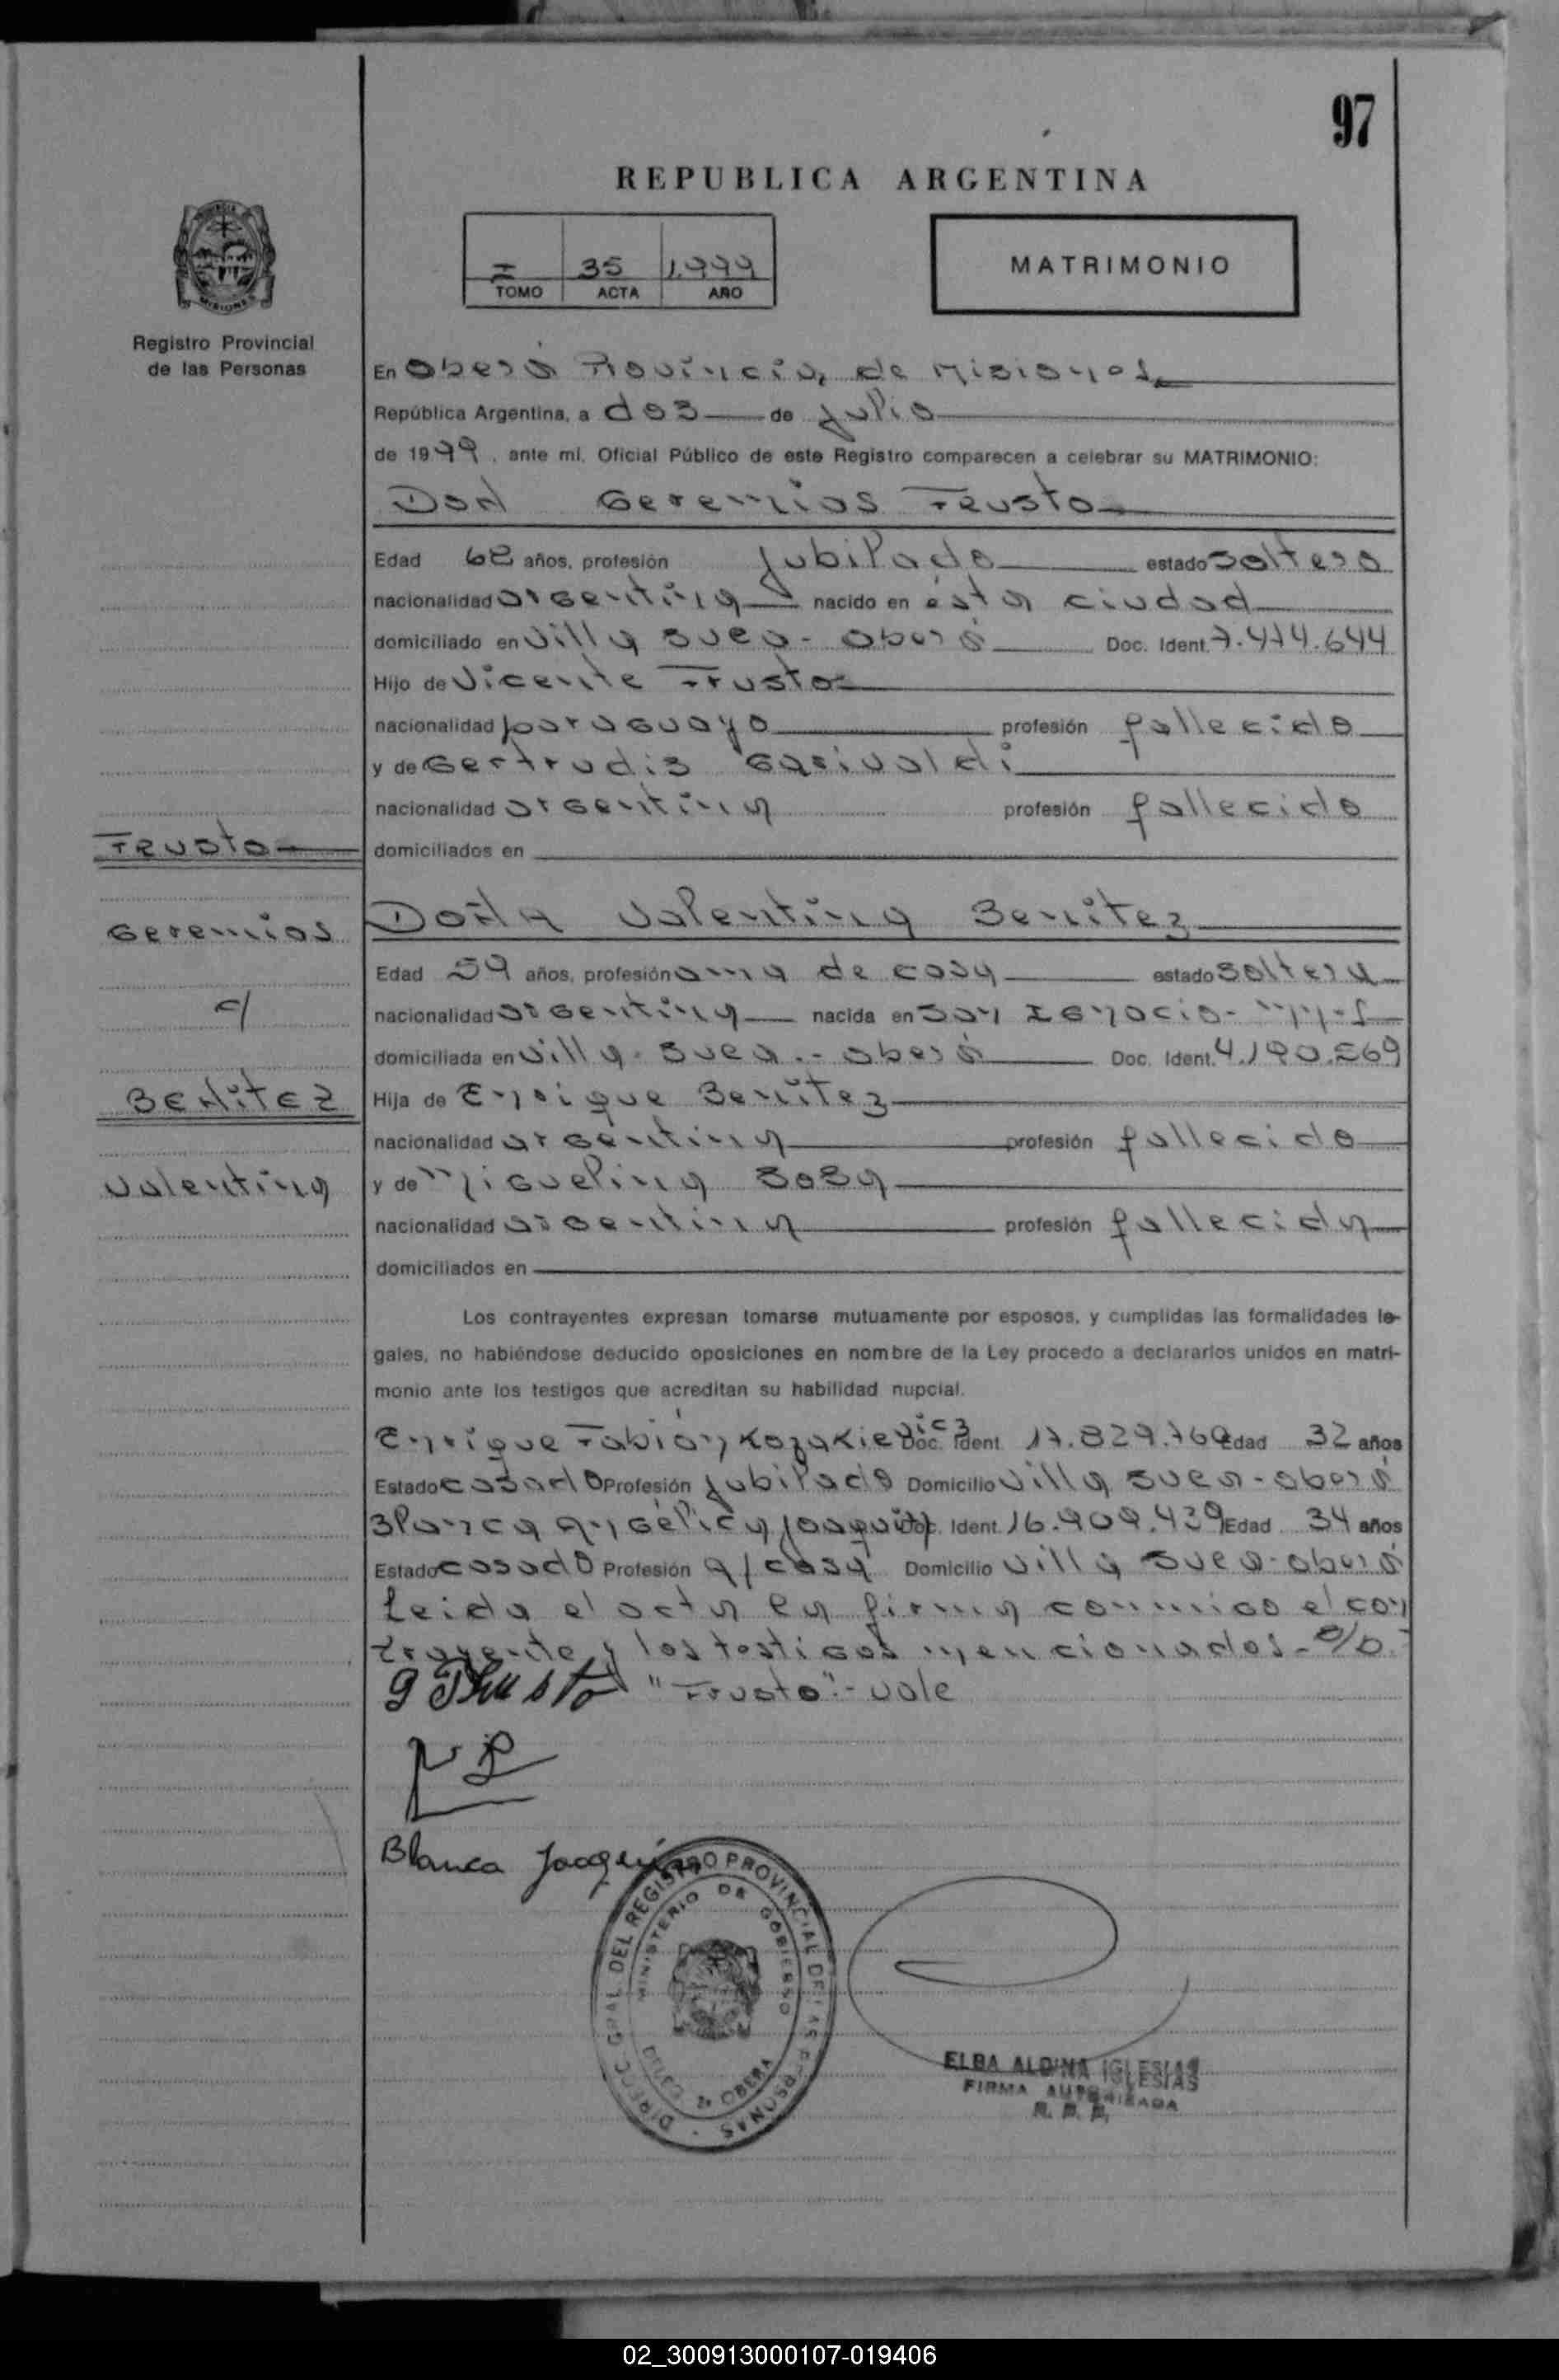 97
REPUBLICA ARGENTINA
I 35 1.999
TOMO ACTA AÑO
MATRIMONIO
PROVINCIA
MISIONES
Registro Provincial
de las Personas
En Oberá Provincia de Misiones
República Argentina, a dos de julio
de 1999, ante mí, Oficial Público de este Registro comparecen a celebrar su MATRIMONIO:
Don Geremias Frusto
Edad 68 años, profesión jubilado estado soltero
nacionalidad argentina nacido en ésta ciudad
domiciliado en Villa Svea - Oberá Doc. Ident. 7.474.644
Hijo de Vicente Frusto
nacionalidad paraguayo profesión fallecido
y de Gertrudis Garivaldi
nacionalidad argentina profesión fallecido
domiciliados en
Frusto
Geremias
c/
Benitez
Valentina
Doña Valentina Benitez
Edad 59 años, profesión ama de casa estado soltera
nacionalidad argentina nacida en San Ignacio - Mnes
domiciliada en Villa Svea - Oberá Doc. Ident. 4.190.569
Hija de Enrique Benitez
nacionalidad argentina profesión fallecido
y de Miguelina Sosa
nacionalidad argentina profesión fallecida
domiciliados en
Los contrayentes expresan tomarse mutuamente por esposos, y cumplidas las formalidades le-
gales, no habiéndose deducido oposiciones en nombre de la Ley procedo a declararlos unidos en matri-
monio ante los testigos que acreditan su habilidad nupcial.
Enrique Fabián Kozakievicz Doc. Ident. 17.829.760 Edad 32 años
Estado casado Profesión jubilado Domicilio Villa Svea - Oberá
Blanca Angélica Joaquin Doc. Ident. 16.909.439 Edad 34 años
Estado casado Profesión a/casa Domicilio Villa Svea - Oberá
Leida el acta la firma conmigo el con
trayente y los testigos mencionados - s/b.-
g Frusto "Frusto".- vale
Blanca Joaquin
DIRECC. GRAL DEL REGISTRO PROVINCIAL DE LAS PERSONAS
MINISTERIO DE GOBIERNO
OBERA
ELBA ALDINA IGLESIAS
FIRMA AUTORIZADA
R. P. P.
02_300913000107-019406